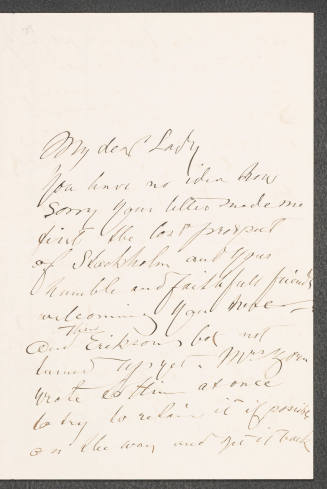 My dear Lady
You have no idea how
sorry your letter made me
first the lost prospect
of Stockholm and your
humble and faithfull friends
welcoming you there
and then Erikson's box not
turned up yet. Mrs Zorn
wrote to him at once
to try to retain it if possible
on the way and get it back